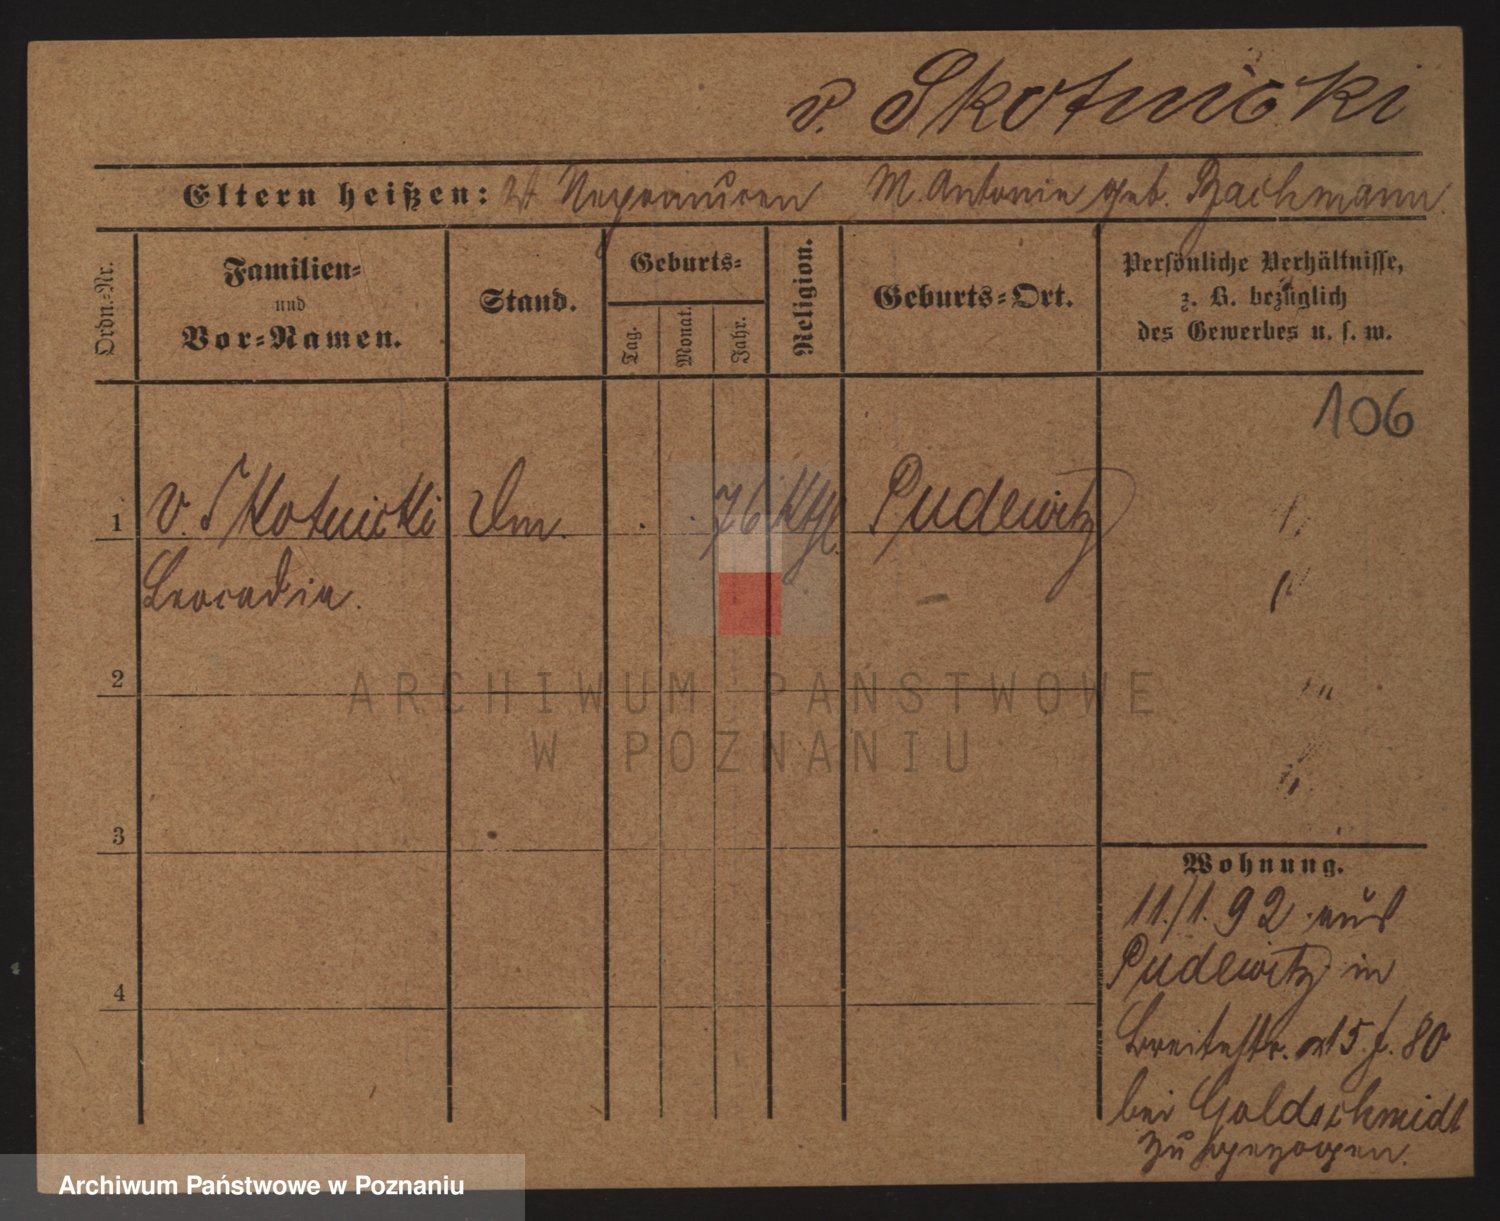 v. Skotnicki
Eltern heißen: V. Nepomucen M. Antonie geb. Bachmann
Ordn.-Nr.
Familien-
und
Vor-Namen.
Stand.
Geburts-
Tag.
Monat.
Jahr.
Religion.
Geburts-Ort.
Persönliche Verhältnisse,
z. B. bezüglich
des Gewerbes u. s. w.
106
1 v. Skotnicki 76 Kth. Pudewitz
Leocadia.
2
3
4
Wohnung.
11./1. 92 aus
Pudewitz in
Breitestr. 15. f. 80
bei Goldschmidt
zugezogen.
ARCHIWUM PAŃSTWOWE
W POZNANIU
Archiwum Państwowe w Poznaniu